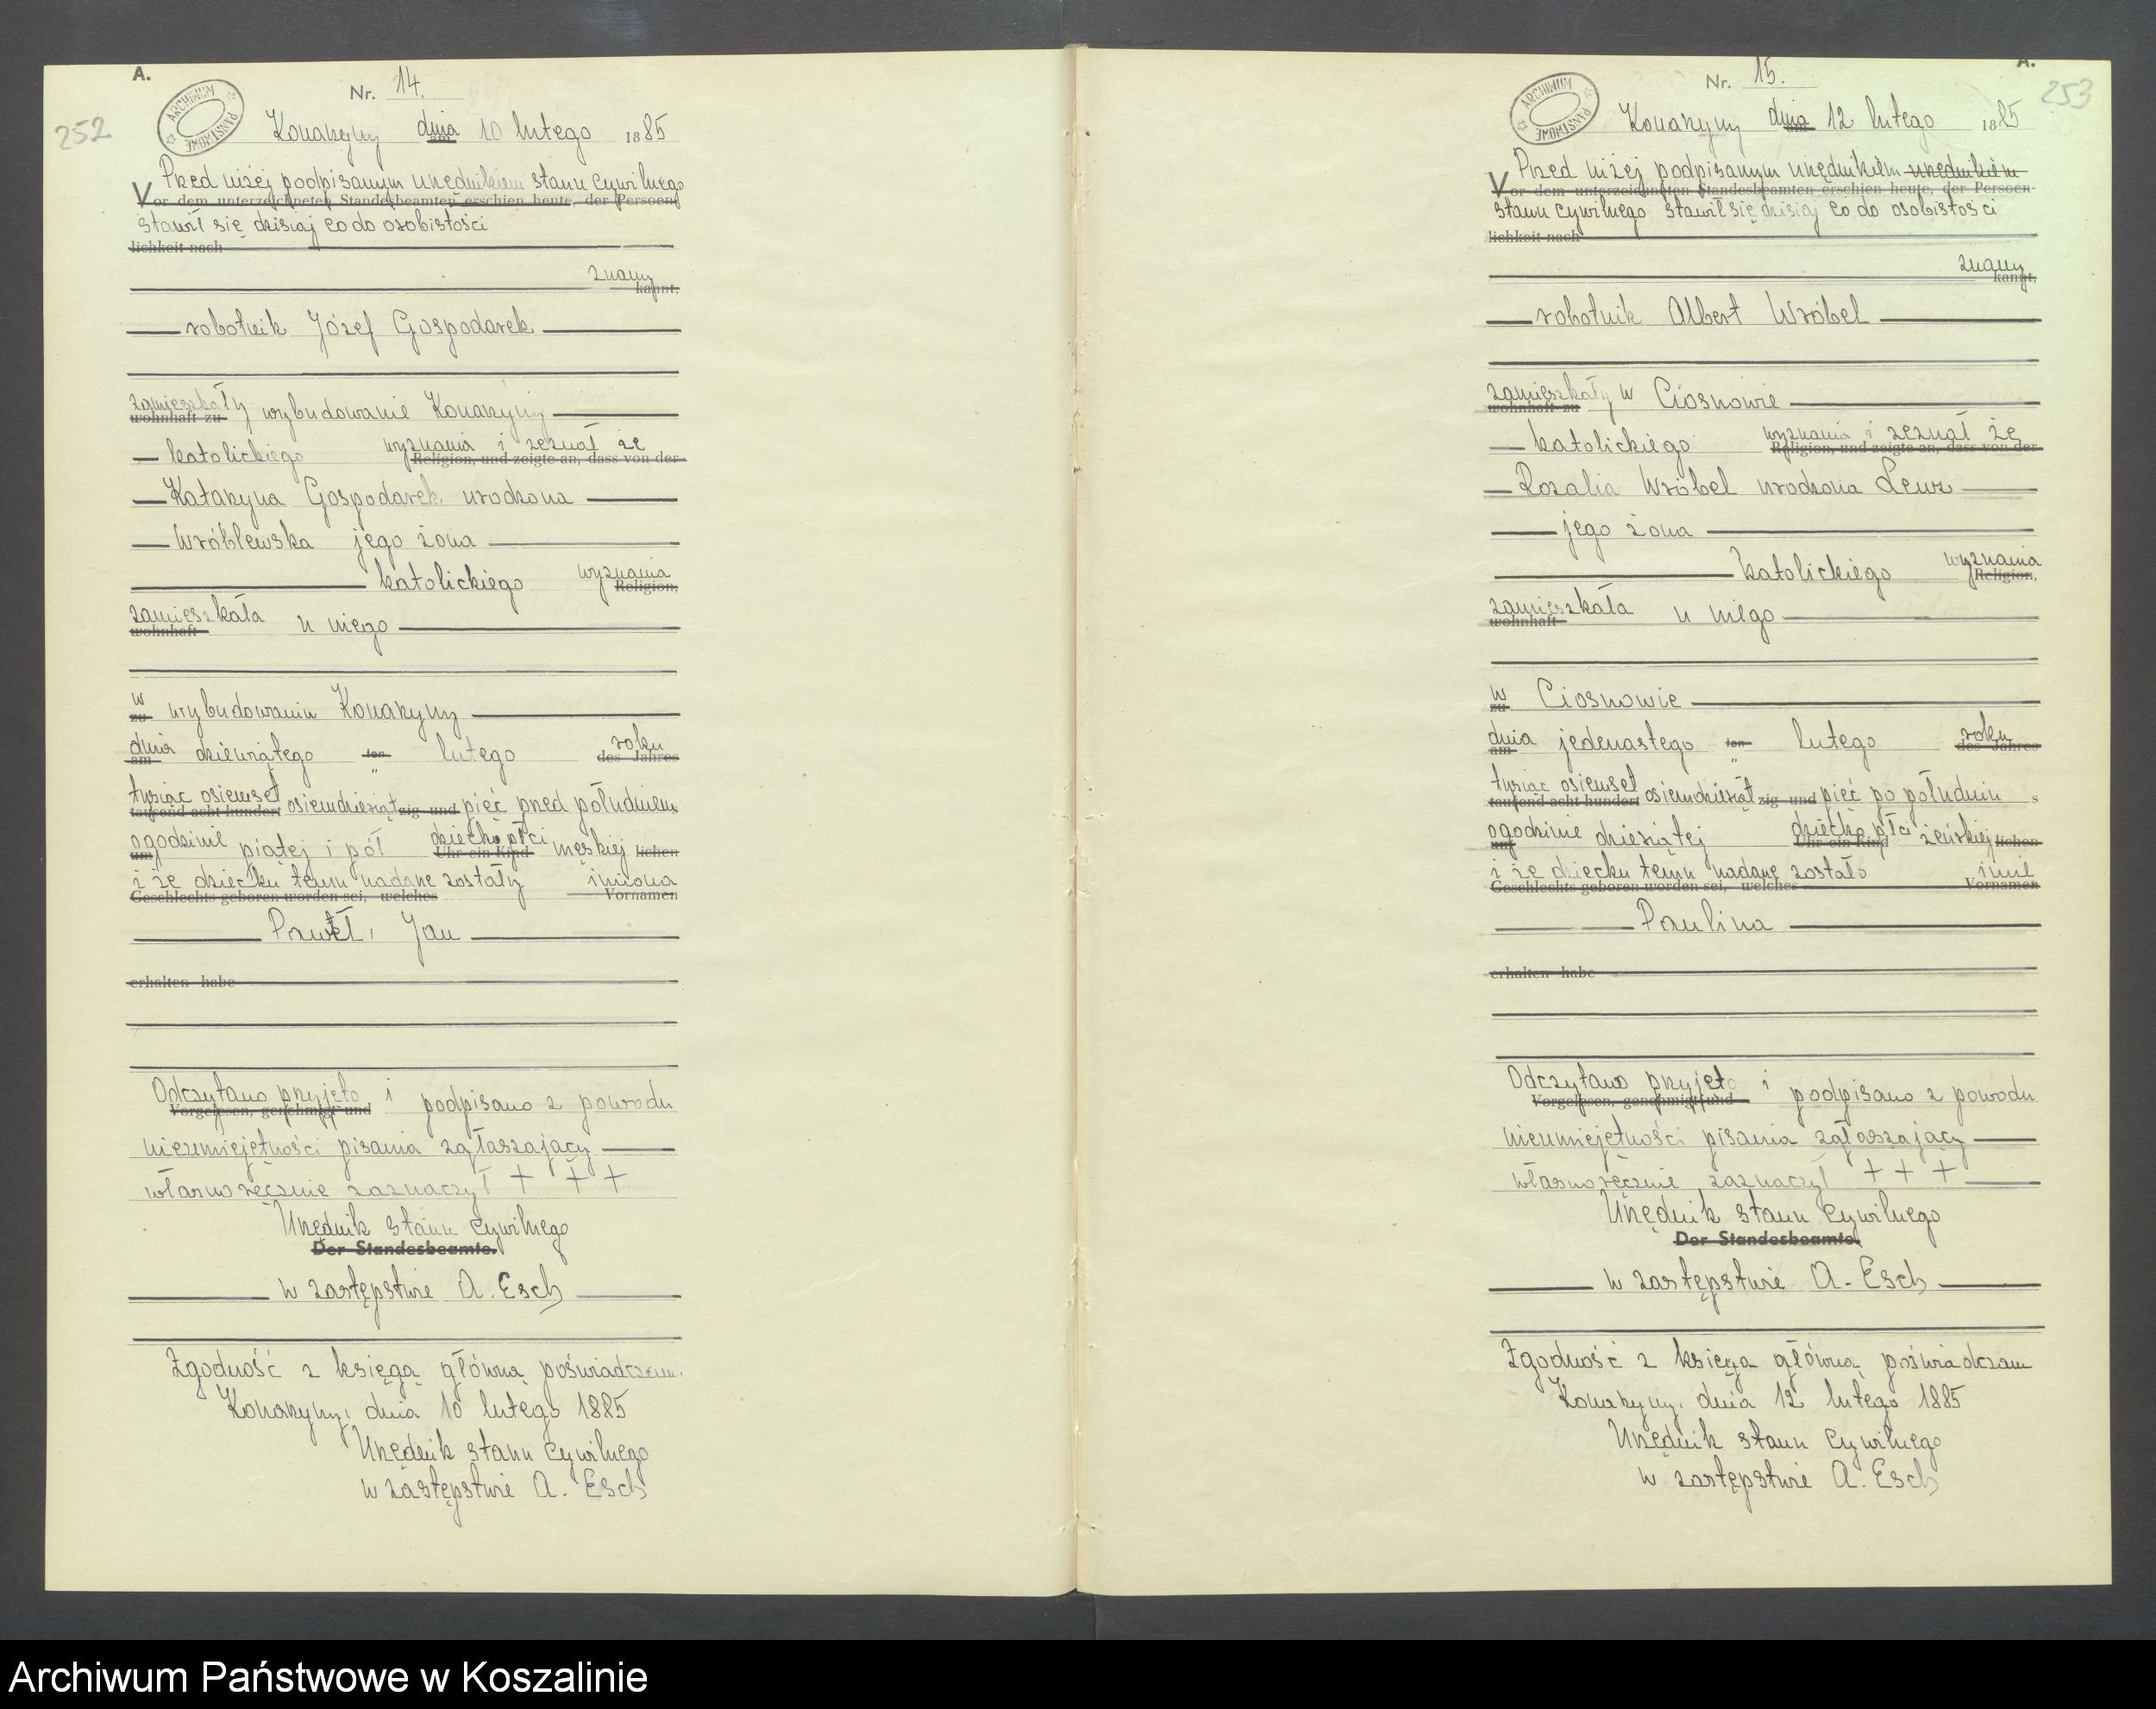 A.
Nr. 14.
ARCHIWUM PAŃSTWOWE
252
Konarzyny dnia 10 lutego 1885
Przed niżej podpisanym urzędnikiem stanu cywilnego
Vor dem unterzeichneten Standesbeamten erschien heute, der Persoen-
stawił się dzisiaj co do osobistości
lichkeit nach
znany
kannt,
robotnik Józef Gospodarek
zamieszkały wybudowanie Konarzyny
wohnhaft zu
katolickiego wyznania i zeznał że
Religion, und zeigte an, dass von der
Katarzyna Gospodarek urodzona
Wróblewska jego żona
katolickiego wyznania
Religion,
zamieszkała u niego
wohnhaft
w wybudowaniu Konarzyny
zu
dnia dziewiątego ten lutego roku
am des Jahres
tysiąc osiemset osiemdziesiąt zig und pięć przed południem
tausend acht hundert
o godzinie piątej i pół dziecko płci męskiej lichen
um Uhr ein Kind
i że dziecku temu nadane zostały imiona
Geschlechts geboren worden sei, welches Vornamen
Paweł, Jan
erhalten habe
Odczytano przyjęto i podpisano z powodu
Vorgelesen, genehmigt und
nieumiejętności pisania zgłaszający
własnoręcznie zaznaczył + + +
Urzędnik stanu cywilnego
Der Standesbeamte.
w zastępstwie A. Esch
Zgodność z księgą główną poświadczam.
Konarzyny, dnia 10 lutego 1885
Urzędnik stanu cywilnego
w zastępstwie A. Esch
A.
Nr. 15.
ARCHIWUM PAŃSTWOWE
253
Konarzyny dnia 12 lutego 1885
Przed niżej podpisanym urzędnikiem urzędnikiem
Vor dem unterzeichneten Standesbeamten erschien heute, der Persoen-
stanu cywilnego stawił się dzisiaj co do osobistości
lichkeit nach
znany
kannt,
robotnik Albert Wróbel
zamieszkały w Ciosnowie
wohnhaft zu
katolickiego wyznania i zeznał że
Religion, und zeigte an, dass von der
Rozalia Wróbel urodzona Lewz
jego żona
katolickiego wyznania
Religion,
zamieszkała u niego
wohnhaft
w Ciosnowie
zu
dnia jedenastego ten lutego roku
am des Jahres
tysiąc osiemset osiemdziesiąt zig und pięć po południu
tausend acht hundert
o godzinie dziesiątej dziecko płci żeńskiej lichen
um Uhr ein Kind
i że dziecku temu nadane zostało imię
Geschlechts geboren worden sei, welches Vornamen
Paulina
erhalten habe
Odczytano przyjęto i podpisano z powodu
Vorgelesen, genehmigt und
nieumiejętności pisania zgłaszający
własnoręcznie zaznaczył + + +
Urzędnik stanu cywilnego
Der Standesbeamte.
w zastępstwie A. Esch
Zgodność z księgą główną poświadczam
Konarzyny, dnia 12 lutego 1885
Urzędnik stanu cywilnego
w zastępstwie A. Esch
Archiwum Państwowe w Koszalinie